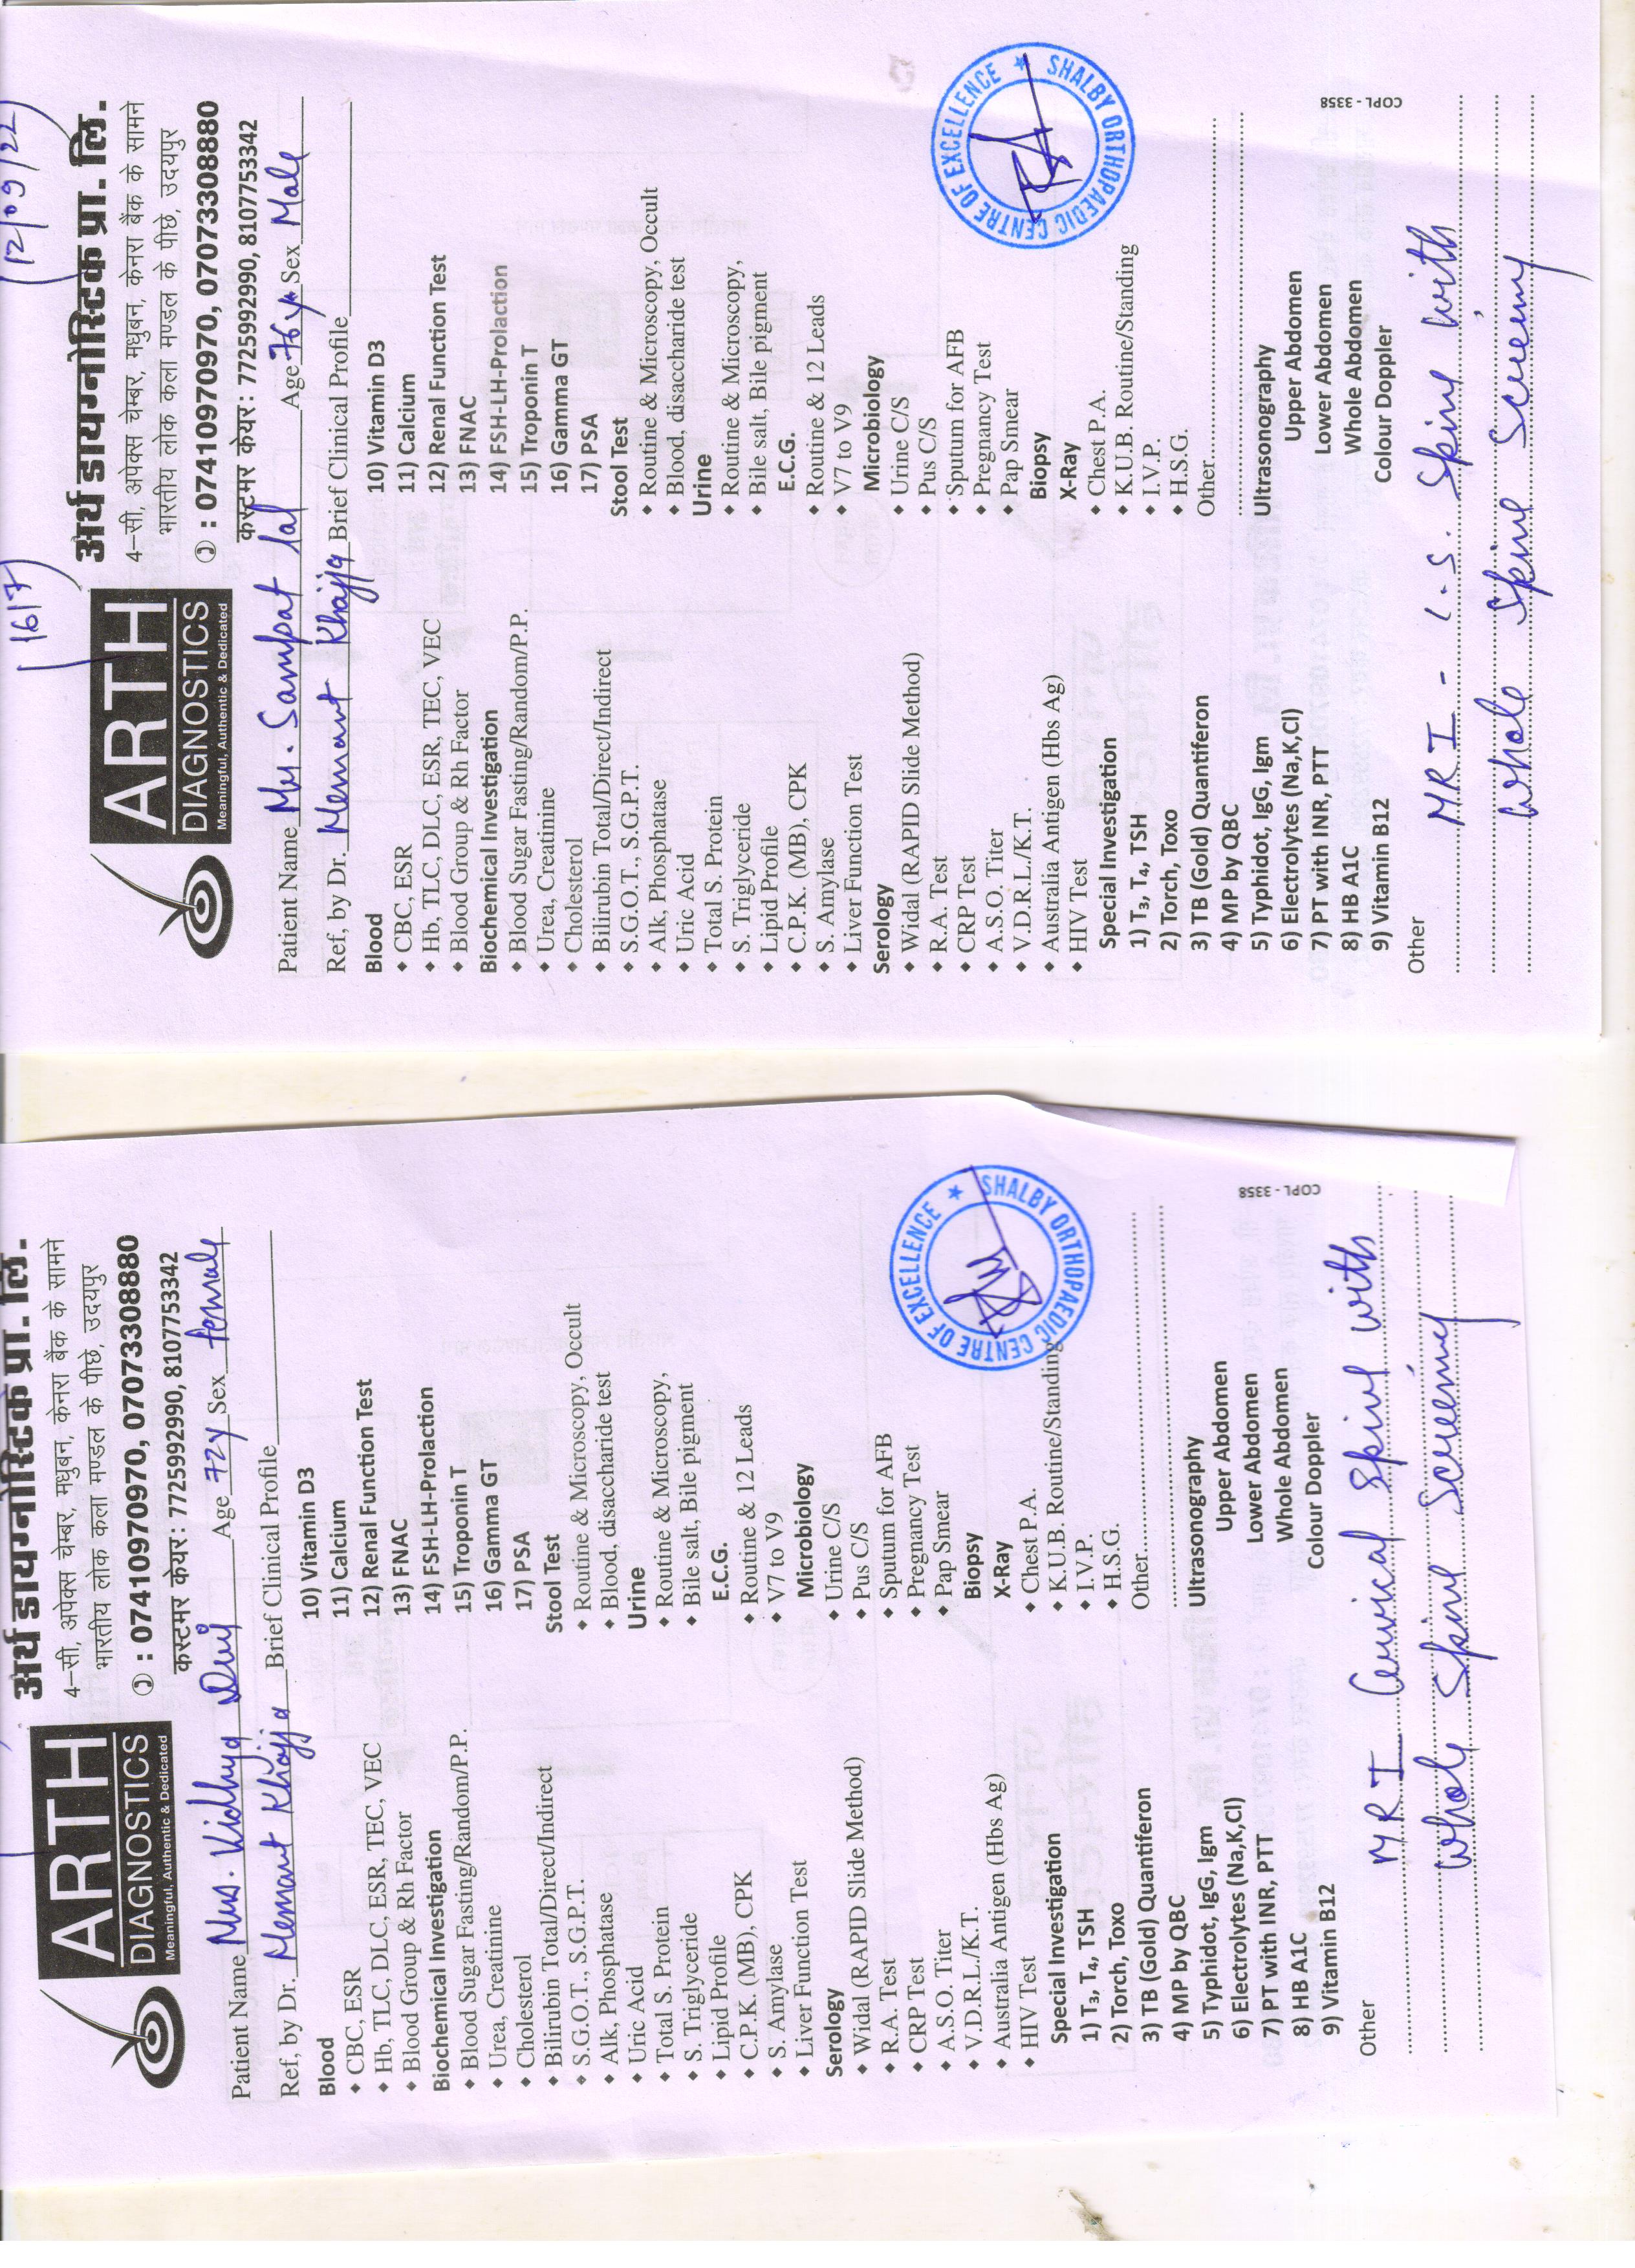 ARTH
DIAGNOSTICS
Meaningful, Authentic & Dedicated
अर्थ डायग्नोस्टिक प्रा. लि.
4–सी, अपेक्स चेम्बर, मधुबन, केनरा बैंक के सामने
भारतीय लोक कला मण्डल के पीछे, उदयपुर
: 07410970970, 07073308880
कस्टमर केयर: 7725992990, 8107753342
Patient Name Mrs. Vidhya Devi Age 72y Sex female
Ref, by Dr. Hemant Khajja Brief Clinical Profile
Blood
♦ CBC, ESR
♦ Hb, TLC, DLC, ESR, TEC, VEC
♦ Blood Group & Rh Factor
Biochemical Investigation
♦ Blood Sugar Fasting/Random/P.P.
♦ Urea, Creatinine
♦ Cholesterol
♦ Bilirubin Total/Direct/Indirect
♦ S.G.O.T., S.G.P.T.
♦ Alk, Phosphatase
♦ Uric Acid
♦ Total S. Protein
♦ S. Triglyceride
♦ Lipid Profile
♦ C.P.K. (MB), CPK
♦ S. Amylase
♦ Liver Function Test
Serology
♦ Widal (RAPID Slide Method)
♦ R.A. Test
♦ CRP Test
♦ A.S.O. Titer
♦ V.D.R.L./K.T.
♦ Australia Antigen (Hbs Ag)
♦ HIV Test
Special Investigation
1) T₃, T₄, TSH
2) Torch, Toxo
3) TB (Gold) Quantiferon
4) MP by QBC
5) Typhidot, IgG, Igm
6) Electrolytes (Na,K,Cl)
7) PT with INR, PTT
8) HB A1C
9) Vitamin B12
10) Vitamin D3
11) Calcium
12) Renal Function Test
13) FNAC
14) FSH-LH-Prolaction
15) Troponin T
16) Gamma GT
17) PSA
Stool Test
♦ Routine & Microscopy, Occult
♦ Blood, disaccharide test
Urine
♦ Routine & Microscopy,
♦ Bile salt, Bile pigment
E.C.G.
♦ Routine & 12 Leads
♦ V7 to V9
Microbiology
♦ Urine C/S
♦ Pus C/S
♦ Sputum for AFB
♦ Pregnancy Test
♦ Pap Smear
Biopsy
X-Ray
♦ Chest P.A.
♦ K.U.B. Routine/Standing
♦ I.V.P.
♦ H.S.G.
Other
Ultrasonography
Upper Abdomen
Lower Abdomen
Whole Abdomen
Colour Doppler
SHALBY ORTHOPAEDIC CENTRE OF EXCELLENCE
COPL - 3358
Other
MRI Cervical Spine with
Whole Spine Screening
1617) (12/09/22)
ARTH
DIAGNOSTICS
Meaningful, Authentic & Dedicated
अर्थ डायग्नोस्टिक प्रा. लि.
4–सी, अपेक्स चेम्बर, मधुबन, केनरा बैंक के सामने
भारतीय लोक कला मण्डल के पीछे, उदयपुर
: 07410970970, 07073308880
कस्टमर केयर: 7725992990, 8107753342
Patient Name Mr. Sampat lal Age 76y Sex Male
Ref, by Dr. Hemant Khajja Brief Clinical Profile
Blood
♦ CBC, ESR
♦ Hb, TLC, DLC, ESR, TEC, VEC
♦ Blood Group & Rh Factor
Biochemical Investigation
♦ Blood Sugar Fasting/Random/P.P.
♦ Urea, Creatinine
♦ Cholesterol
♦ Bilirubin Total/Direct/Indirect
♦ S.G.O.T., S.G.P.T.
♦ Alk, Phosphatase
♦ Uric Acid
♦ Total S. Protein
♦ S. Triglyceride
♦ Lipid Profile
♦ C.P.K. (MB), CPK
♦ S. Amylase
♦ Liver Function Test
Serology
♦ Widal (RAPID Slide Method)
♦ R.A. Test
♦ CRP Test
♦ A.S.O. Titer
♦ V.D.R.L./K.T.
♦ Australia Antigen (Hbs Ag)
♦ HIV Test
Special Investigation
1) T₃, T₄, TSH
2) Torch, Toxo
3) TB (Gold) Quantiferon
4) MP by QBC
5) Typhidot, IgG, Igm
6) Electrolytes (Na,K,Cl)
7) PT with INR, PTT
8) HB A1C
9) Vitamin B12
10) Vitamin D3
11) Calcium
12) Renal Function Test
13) FNAC
14) FSH-LH-Prolaction
15) Troponin T
16) Gamma GT
17) PSA
Stool Test
♦ Routine & Microscopy, Occult
♦ Blood, disaccharide test
Urine
♦ Routine & Microscopy,
♦ Bile salt, Bile pigment
E.C.G.
♦ Routine & 12 Leads
♦ V7 to V9
Microbiology
♦ Urine C/S
♦ Pus C/S
♦ Sputum for AFB
♦ Pregnancy Test
♦ Pap Smear
Biopsy
X-Ray
♦ Chest P.A.
♦ K.U.B. Routine/Standing
♦ I.V.P.
♦ H.S.G.
Other
Ultrasonography
Upper Abdomen
Lower Abdomen
Whole Abdomen
Colour Doppler
SHALBY ORTHOPAEDIC CENTRE OF EXCELLENCE
COPL - 3358
Other
MRI - L.S. Spine with
Whole Spine Screening